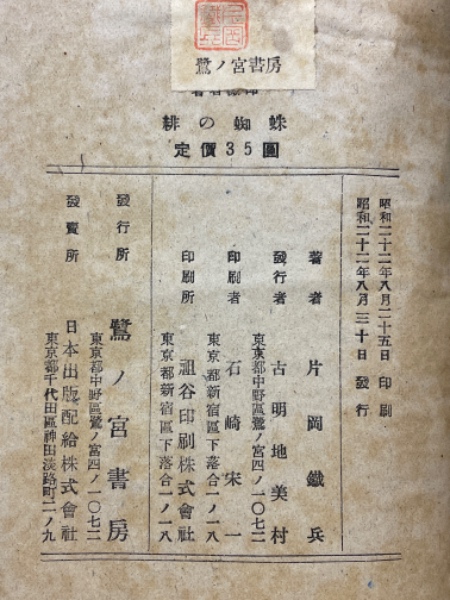 鷺ノ宮書房
緋の蜘蛛
定價35圓
昭和二十二年八月二十五日 印刷
昭和二十二年八月三十日 發行
著者 片岡鐵兵
發行者 古明地美村
東京都中野區鷺ノ宮四ノ一〇七二
印刷者 石崎宋一
東京都新宿區下落合一ノ一八
印刷所 祖谷印刷株式會社
東京都新宿區下落合一ノ一八
發行所 鷺ノ宮書房
東京都中野區鷺ノ宮四ノ一〇七二
發賣所 日本出版配給株式會社
東京都千代田區神田淡路町二ノ九